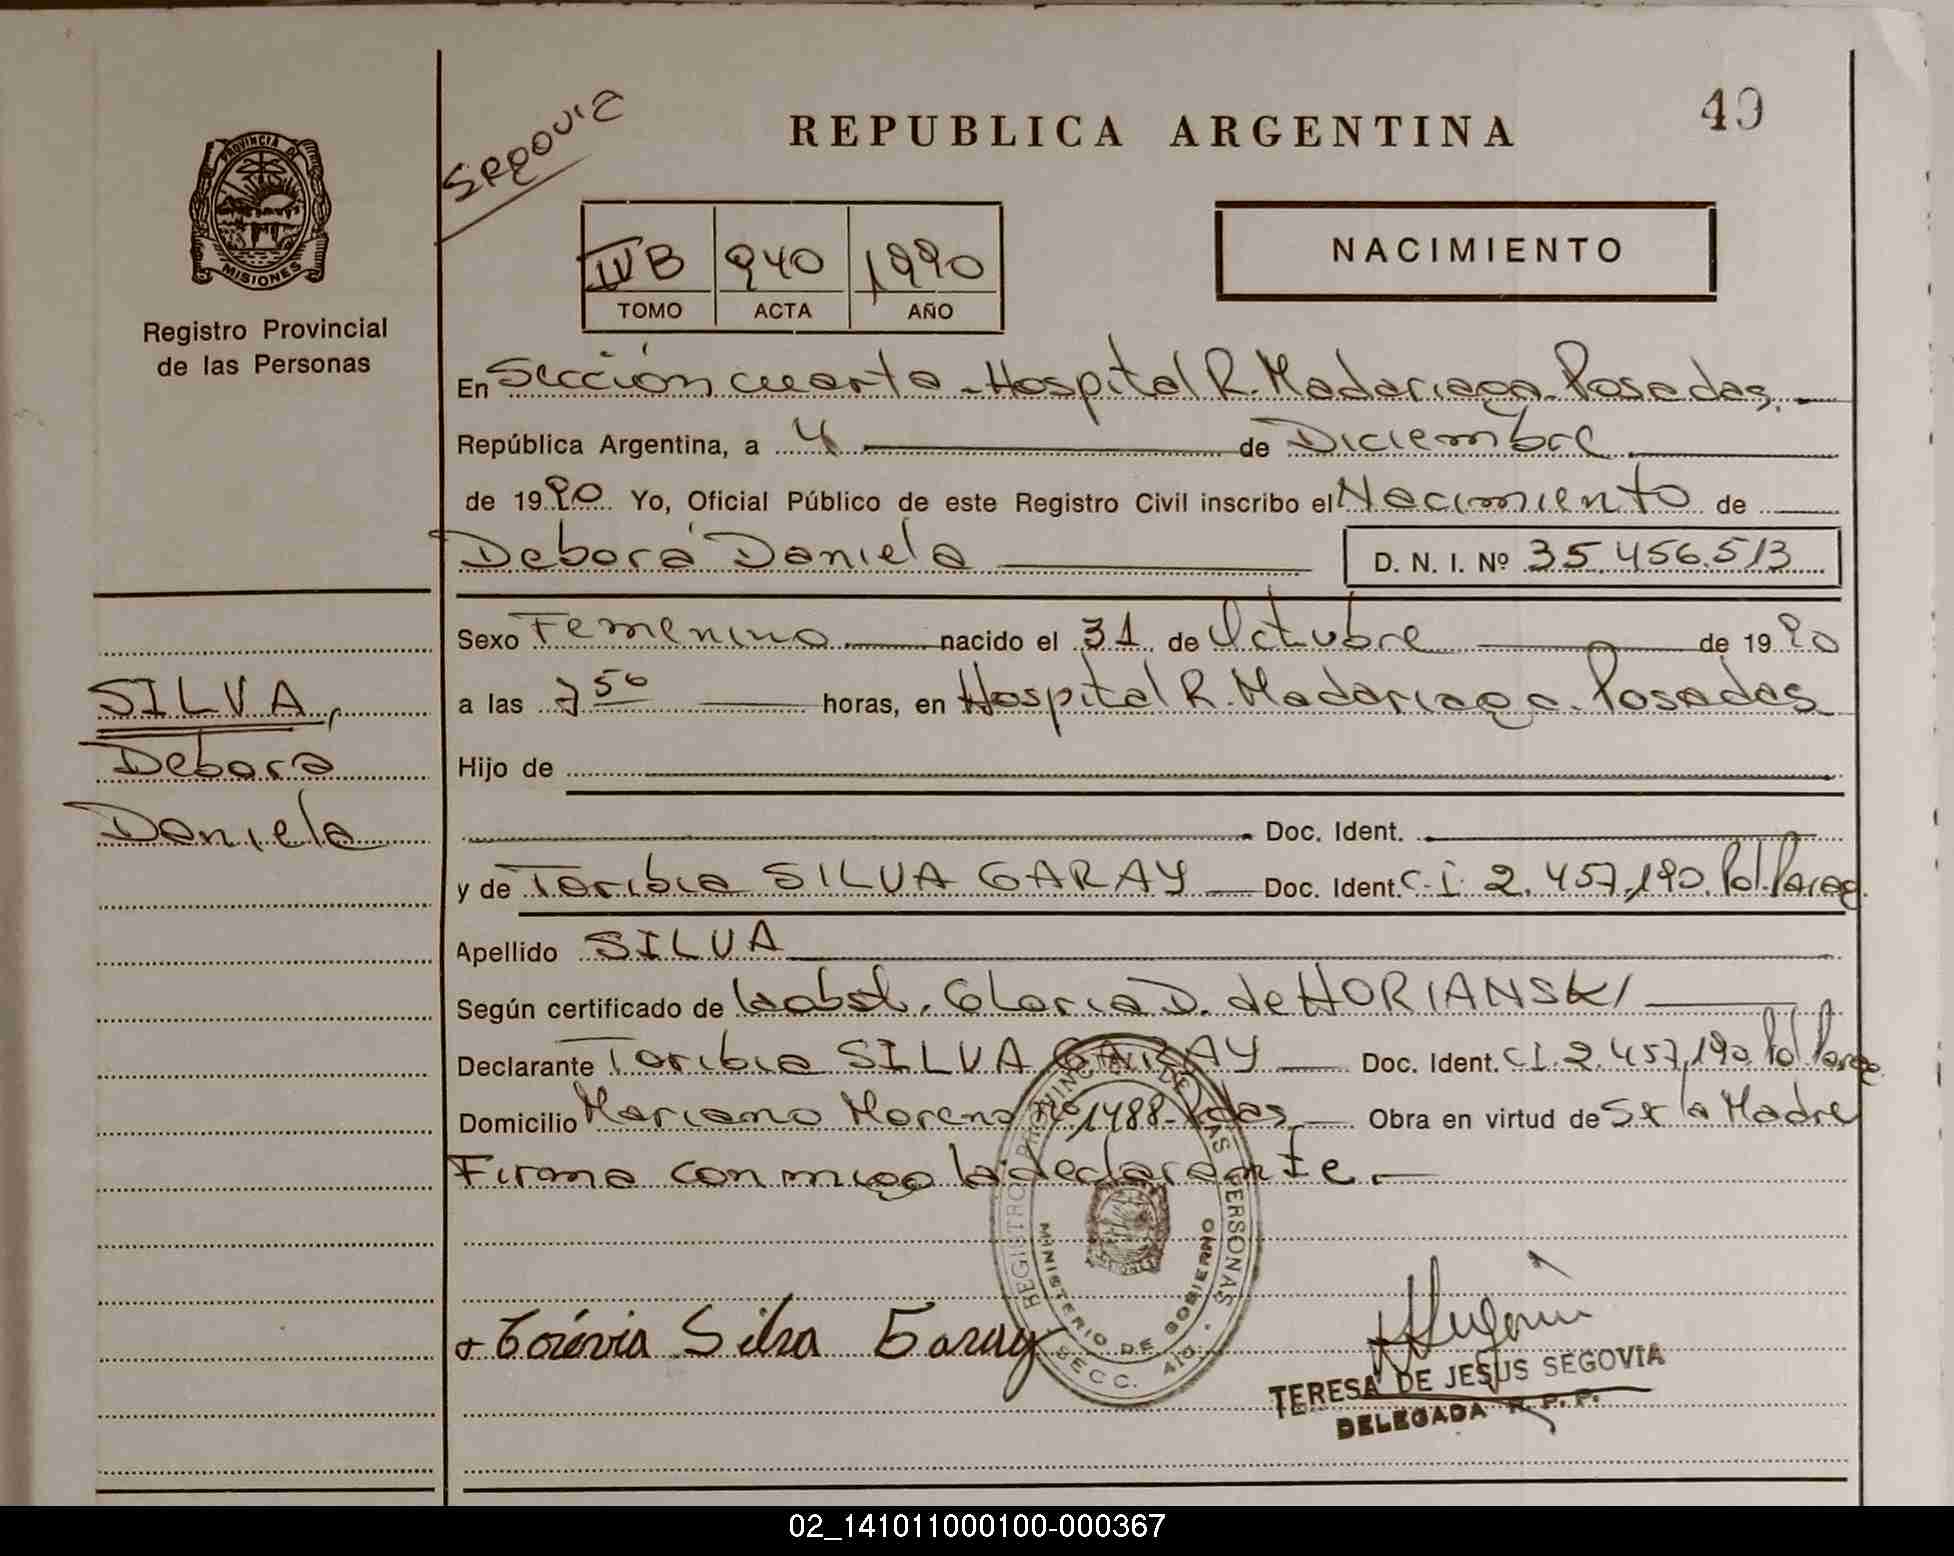 49
REPUBLICA ARGENTINA
Segovia
PROVINCIA DE
MISIONES
Registro Provincial
de las Personas
IVB 940 1990
TOMO ACTA AÑO
NACIMIENTO
En Sección cuarta - Hospital R. Madariaga - Posadas. -
República Argentina, a 4 de Diciembre
de 1990 Yo, Oficial Público de este Registro Civil inscribo el Nacimiento de
Debora Daniela D. N. I. Nº 35.456.513
Sexo Femenino nacido el 31 de Octubre de 1990
a las 7 50 horas, en Hospital R. Madariaga. Posadas
Hijo de
Doc. Ident.
y de Toribia SILVA GARAY Doc. Ident. C.I. 2.457.190. Pol. Parag.
Apellido SILVA
Según certificado de Gloria D. de HORIANSKI
Declarante Toribia SILVA GARAY Doc. Ident. C.I. 2.457.190 Pol Parag
Domicilio Mariano Moreno nº 1488 - Pdas. Obra en virtud de Ser la Madre
Firma conmigo la declarante. -
SILVA,
Debora
Daniela
REGISTRO PROVINCIAL DE LAS PERSONAS
MINISTERIO DE GOBIERNO
SECC. 4ta.
Silva Garay
TERESA DE JESUS SEGOVIA
DELEGADA R. P. P.
02_141011000100-000367